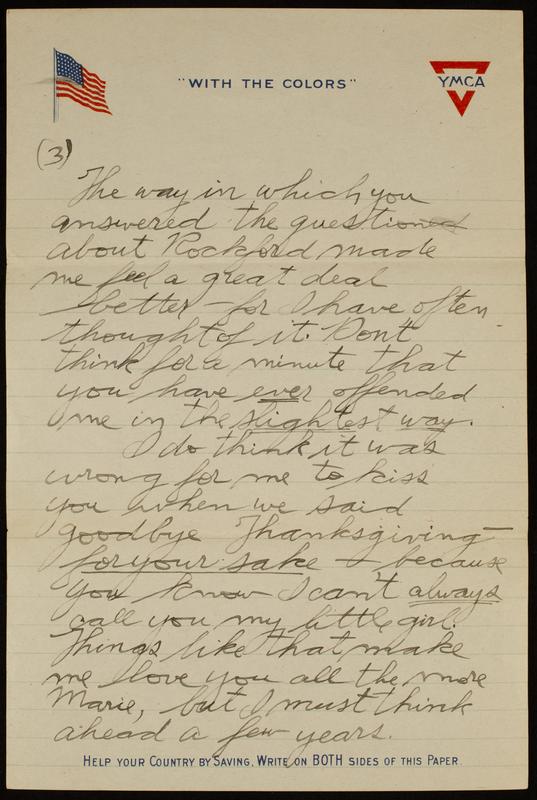 "WITH THE COLORS"
YMCA
(3)
The way in which you
answered the question
about Rockford made
me feel a great deal
better – for I have often
thought of it. Don't
think for a minute that
you have ever offended
me in the slightest way.
I do think it was
wrong for me to kiss
you when we said
goodbye Thanksgiving –
for your sake – because
you know I can't always
call you my little girl.
Things like that make
me love you all the more
Marie, but I must think
ahead a few years.
HELP YOUR COUNTRY BY SAVING. WRITE ON BOTH SIDES OF THIS PAPER